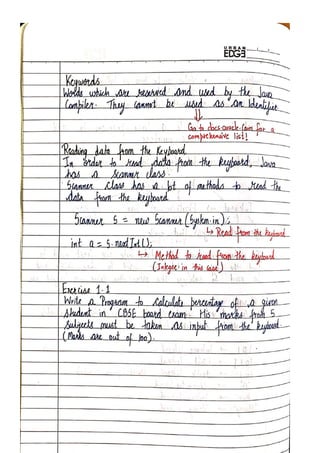 URBAN
EDGE
Keywords
Words which are reserved and used by the Java
Compiler. They cannot be used as an Identifier
Go to docs.oracle.com for a
comprehensive list!
Reading data from the Keyboard
In order to read data from the keyboard, Java
has a scanner class.
Scanner class has a lot of methods to read the
data from the keyboard
Scanner S = new Scanner (System.in);
↳ Read from the keyboard
int a = S.nextInt();
↳ Method to read from the keyboard
(Integer in this case)
Exercise 1.1
Write a Program to calculate percentage of a given
student in CBSE board exam. His marks from 5
subjects must be taken as input from the keyboard.
(Marks are out of 100).